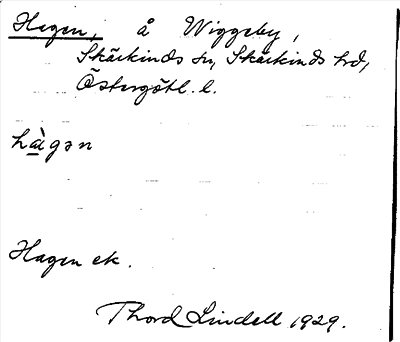 Hagen, å Wiggeby,
Skärkinds sn, Skärkinds hd,
Östergötl. l.
hà̱gən
Hagen ek.
Thord Lindell 1929.